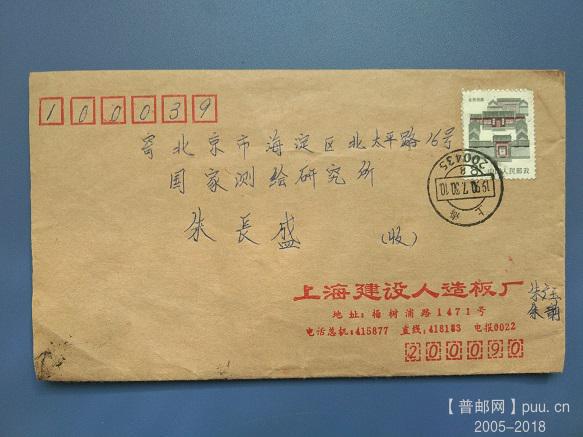 100039
寄北京市海淀区北太平路16号
国家测绘研究所
朱長盛 (收)
中国人民邮政
200435
1990.7.30.10
上海
上海建设人造板厂
地址:杨树浦路1471号
电话总机:415877 直线:418183 电报0022
200090
【普邮网】puu.cn
2005-2018